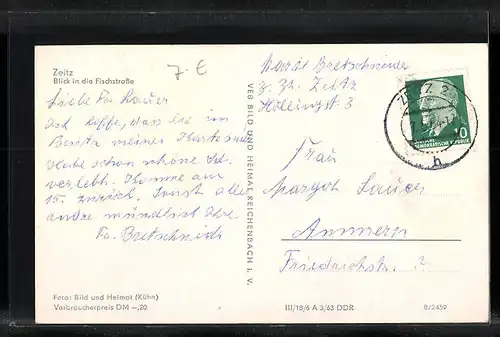 Zeitz
Blick in die Fischstraße
7.€
Liebe Frau Lauer
Ich hoffe, daß Sie im
Besitz meiner Karte sind
Habe schon schöne
verlebt. Komme am
15. zurück. Sonst alles
andre mündlich Ihre
Fr. Bretschneider
Foto: Bild und Heimat (Kühn)
Verbraucherpreis DM –,20
VEB BILD UND HEIMAT REICHENBACH I. V.
Bretschneider
z. Zt. Zeitz
3
ZEITZ 2
h
10
DEUTSCHE
DEMOKRATISCHE REPUBLIK
Frau
Margot Lauer
Ammern
Friedrichstr. 7
III/18/6 A 3/63 DDR
8/2459